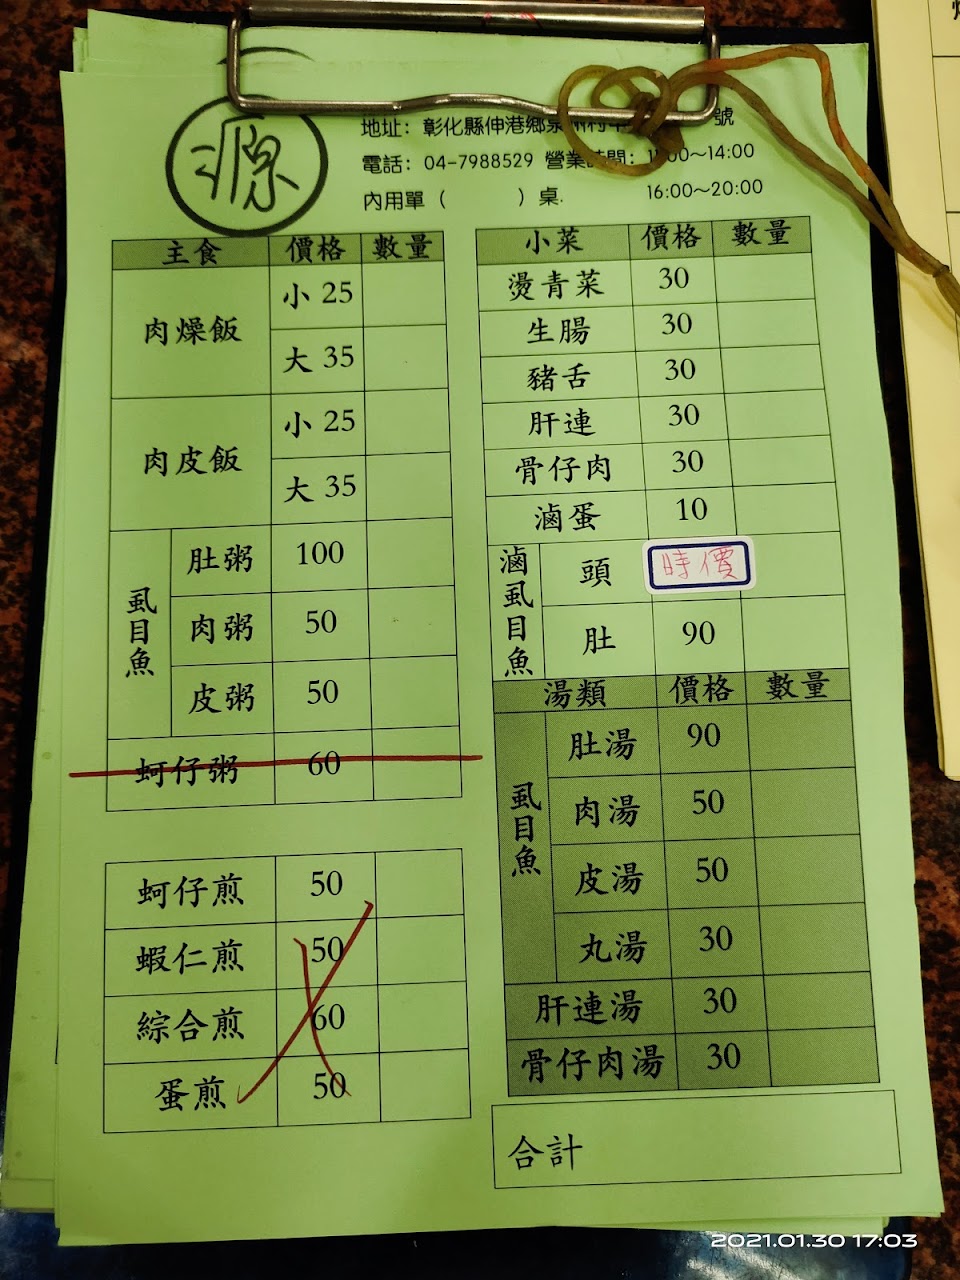 源
地址：彰化縣伸港鄉泉州村 號
電話：04-7988529 營業時間：11:00～14:00
內用單（ ）桌. 16:00～20:00
主食 價格 數量
肉燥飯 小 25
大 35
肉皮飯 小 25
大 35
虱目魚 肚粥 100
肉粥 50
皮粥 50
蚵仔粥 60
蚵仔煎 50
蝦仁煎 50
綜合煎 60
蛋煎 50
小菜 價格 數量
燙青菜 30
生腸 30
豬舌 30
肝連 30
骨仔肉 30
滷蛋 10
滷虱目魚 頭 時價
肚 90
湯類 價格 數量
虱目魚 肚湯 90
肉湯 50
皮湯 50
丸湯 30
肝連湯 30
骨仔肉湯 30
合計
2021.01.30 17:03